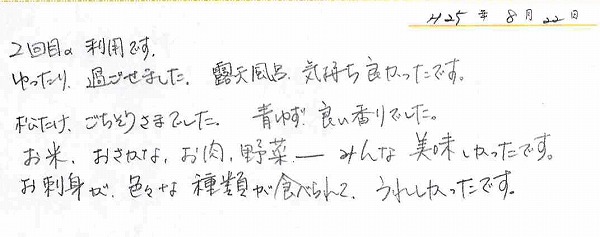 H25年8月22日
2回目の利用です。
ゆったり、過ごせました。露天風呂、気持ち良かったです。
松たけ、ごちそうさまでした。青ゆず、良い香りでした。
お米、おさかな、お肉、野菜― みんな美味しかったです。
お刺身が、色々な種類が食べられて、うれしかったです。